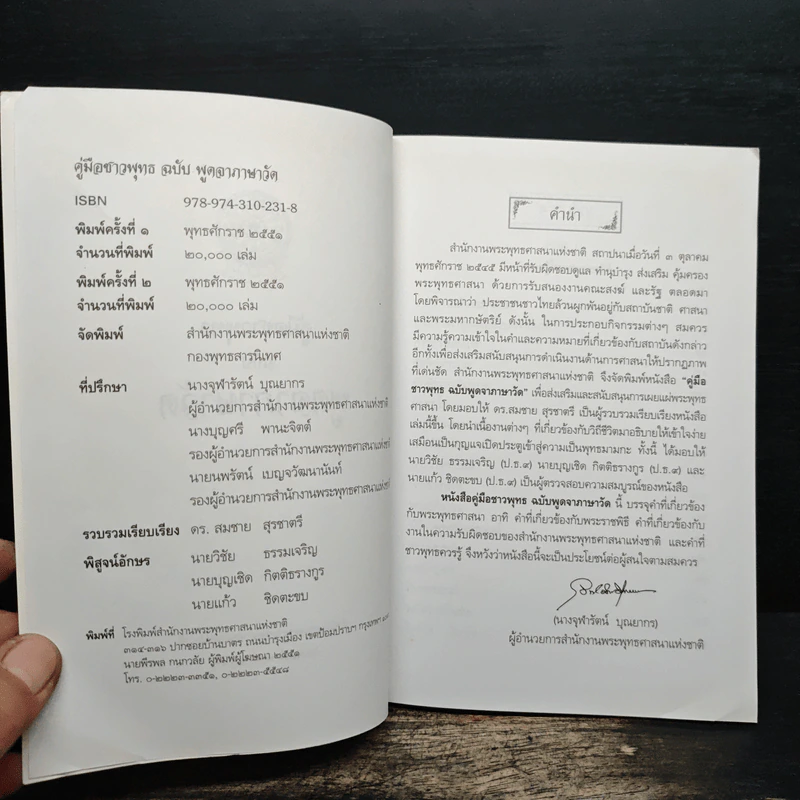 คู่มือชาวพุทธ ฉบับ พูดจาภาษาวัด
ISBN 978-974-310-231-8
พิมพ์ครั้งที่ ๑ พุทธศักราช ๒๕๕๑
จำนวนที่พิมพ์ ๒๐,๐๐๐ เล่ม
พิมพ์ครั้งที่ ๒ พุทธศักราช ๒๕๕๑
จำนวนที่พิมพ์ ๒๐,๐๐๐ เล่ม
จัดพิมพ์ สำนักงานพระพุทธศาสนาแห่งชาติ
กองพุทธสารนิเทศ
ที่ปรึกษา นางจุฬารัตน์ บุณยากร
ผู้อำนวยการสำนักงานพระพุทธศาสนาแห่งชาติ
นางบุญศรี พานะจิตต์
รองผู้อำนวยการสำนักงานพระพุทธศาสนาแห่งชาติ
นายนพรัตน์ เบญจวัฒนานันท์
รองผู้อำนวยการสำนักงานพระพุทธศาสนาแห่งชาติ
รวบรวมเรียบเรียง ดร. สมชาย สุรชาตรี
พิสูจน์อักษร นายวิชัย ธรรมเจริญ
นายบุญเชิด กิตติธรางกูร
นายแก้ว ชิดตะขบ
พิมพ์ที่ โรงพิมพ์สำนักงานพระพุทธศาสนาแห่งชาติ
๓๑๔-๓๑๖ ปากซอยบ้านบาตร ถนนบำรุงเมือง เขตป้อมปราบฯ กรุงเทพฯ
นายพีรพล กนกวลัย ผู้พิมพ์ผู้โฆษณา ๒๕๕๑
โทร. ๐-๒๒๒๓-๓๓๕๑, ๐-๒๒๒๓-๕๕๔๘
คำนำ
สำนักงานพระพุทธศาสนาแห่งชาติ สถาปนาเมื่อวันที่ ๓ ตุลาคม
พุทธศักราช ๒๕๔๕ มีหน้าที่รับผิดชอบดูแล ทำนุบำรุง ส่งเสริม คุ้มครอง
พระพุทธศาสนา ด้วยการรับสนองงานคณะสงฆ์ และรัฐ ตลอดมา
โดยพิจารณาว่า ประชาชนชาวไทยล้วนผูกพันอยู่กับสถาบันชาติ ศาสนา
และพระมหากษัตริย์ ดังนั้น ในการประกอบกิจกรรมต่างๆ สมควร
มีความรู้ความเข้าใจในคำและความหมายที่เกี่ยวข้องกับสถาบันดังกล่าว
อีกทั้งเพื่อส่งเสริมสนับสนุนการดำเนินงานด้านการศาสนาให้ปรากฏภาพ
ที่เด่นชัด สำนักงานพระพุทธศาสนาแห่งชาติ จึงจัดพิมพ์หนังสือ "คู่มือ
ชาวพุทธ ฉบับพูดจาภาษาวัด" เพื่อส่งเสริมและสนับสนุนการเผยแผ่พระพุทธ
ศาสนา โดยมอบให้ ดร.สมชาย สุรชาตรี เป็นผู้รวบรวมเรียบเรียงหนังสือ
เล่มนี้ขึ้น โดยนำเนื้องานต่างๆ ที่เกี่ยวข้องกับวิถีชีวิตมาอธิบายให้เข้าใจง่าย
เสมือนเป็นกุญแจเปิดประตูเข้าสู่ความเป็นพุทธมามกะ ทั้งนี้ ได้มอบให้
นายวิชัย ธรรมเจริญ (ป.ธ.๙) นายบุญเชิด กิตติธรางกูร (ป.ธ.๙) และ
นายแก้ว ชิดตะขบ (ป.ธ.๙) เป็นผู้ตรวจสอบความสมบูรณ์ของหนังสือ
หนังสือคู่มือชาวพุทธ ฉบับพูดจาภาษาวัด นี้ บรรจุคำที่เกี่ยวข้อง
กับพระพุทธศาสนา อาทิ คำที่เกี่ยวข้องกับพระราชพิธี คำที่เกี่ยวข้องกับ
งานในความรับผิดชอบของสำนักงานพระพุทธศาสนาแห่งชาติ และคำที่
ชาวพุทธควรรู้ จึงหวังว่าหนังสือนี้จะเป็นประโยชน์ต่อผู้สนใจตามสมควร
(นางจุฬารัตน์ บุณยากร)
ผู้อำนวยการสำนักงานพระพุทธศาสนาแห่งชาติ